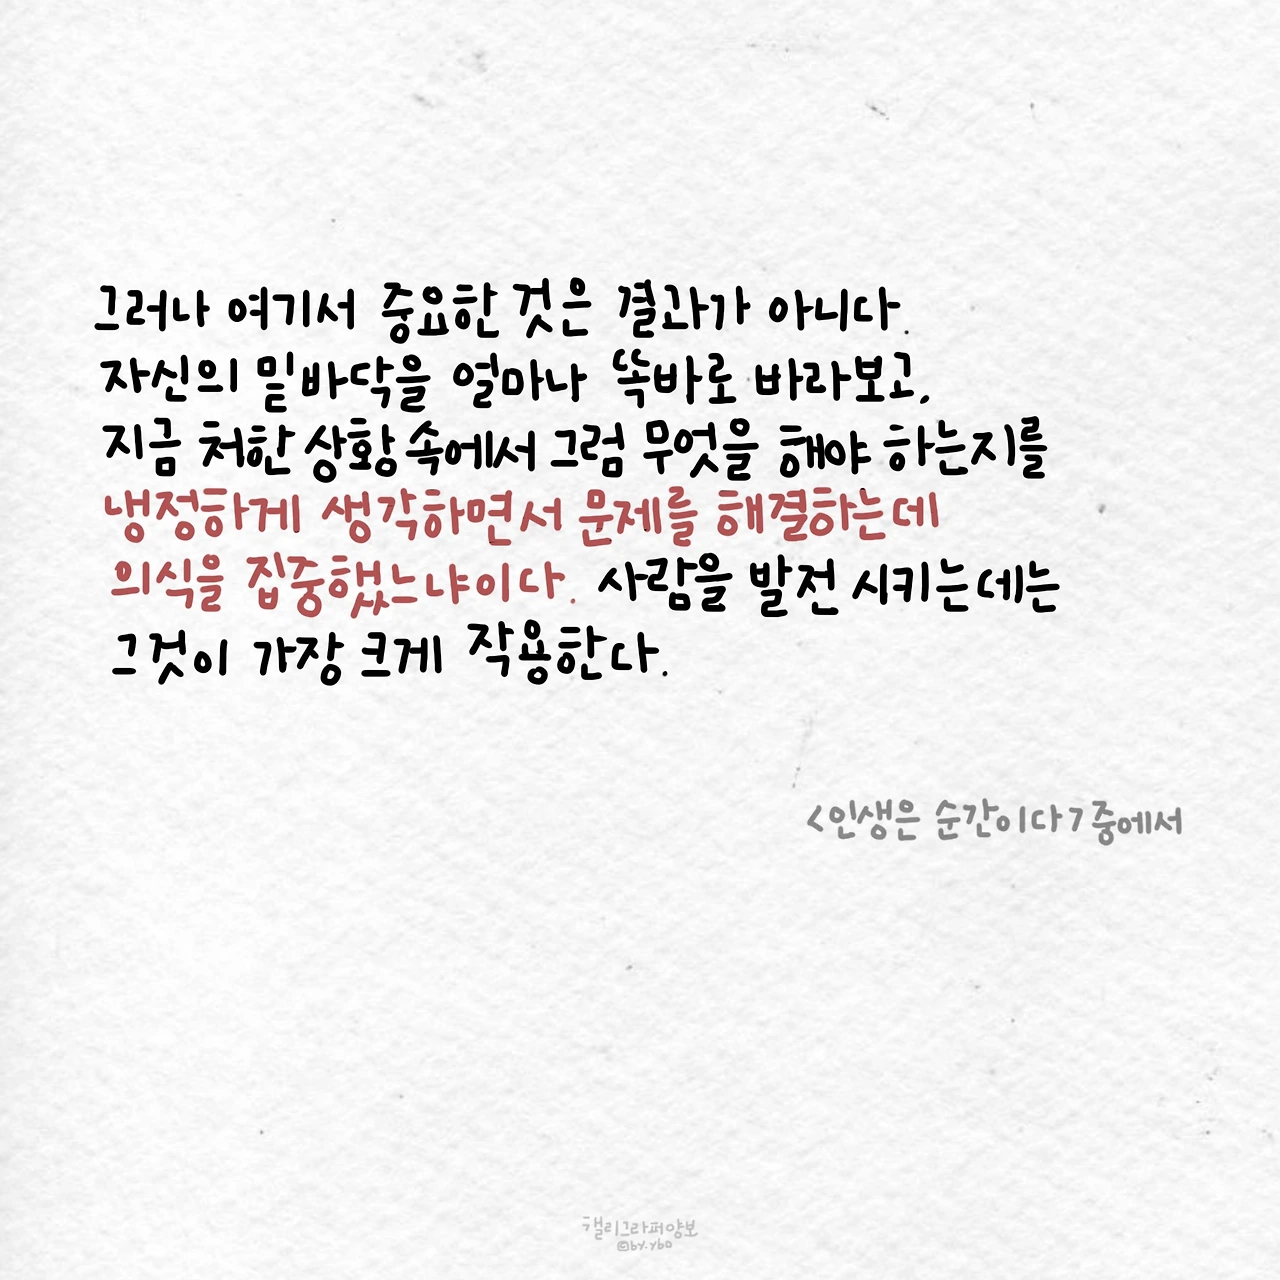 그러나 여기서 중요한 것은 결과가 아니다.
자신의 밑바닥을 얼마나 똑바로 바라보고,
지금 처한 상황 속에서 그럼 무엇을 해야 하는지를
냉정하게 생각하면서 문제를 해결하는데
의식을 집중했느냐이다. 사람을 발전 시키는데는
그것이 가장 크게 작용한다.
<인생은 순간이다> 중에서
캘리그라퍼양보
©by.ybo